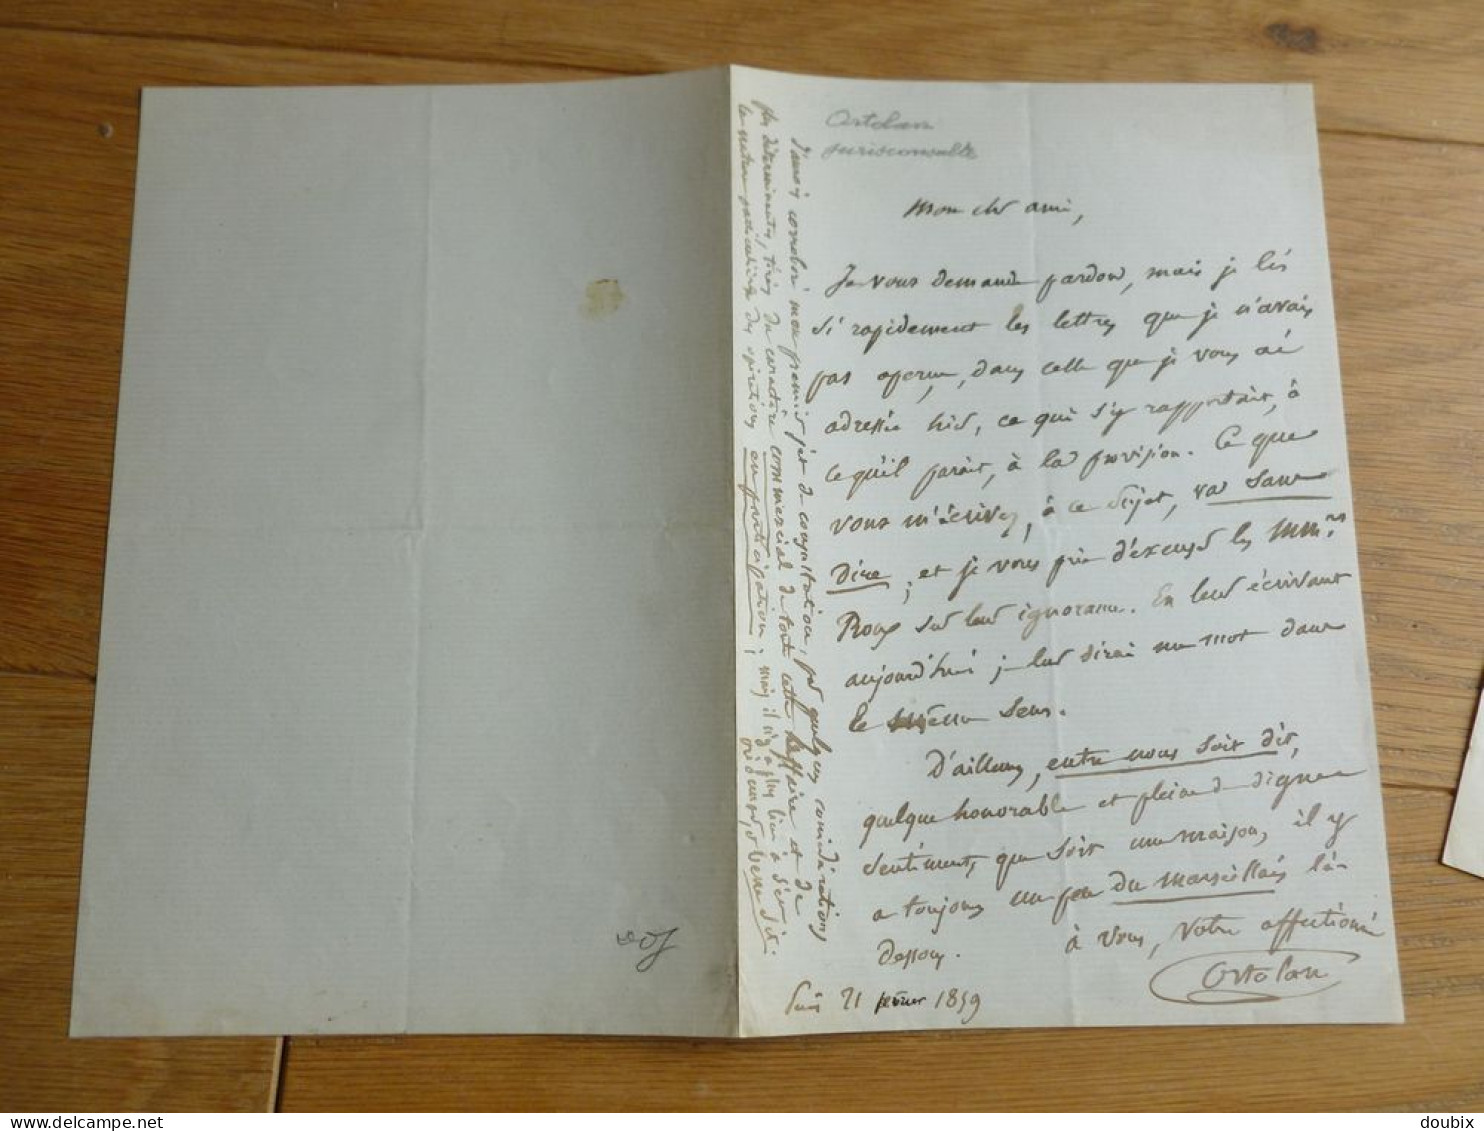 Ortolan
jurisconsulte
Mon cher ami,
Je vous demande pardon, mais je lis
si rapidement les lettres que je n'avais
pas aperçu, dans celle que je vous ai
adressée hier, ce qui s'y rapportait, à
ce qu'il parait, à la provision. Ce que
vous m'écrivez, à ce sujet, va sans
dire ; et je vous prie d'excuser les MM.rs
Roux sur leur ignorance. En leur écrivant
aujourd'hui je leur dirai un mot dans
le même sens.
D'ailleurs, entre nous soit dit,
quelque honorable et pleine de dignes
sentiments que soit une maison, il y
a toujours un peu du marseillais là-
dessous.
à vous, votre affectionné
Ortolan
Paris 21 février 1859
J'aurai corroboré mon premier jet de consultation, par quelques considérations
plus déterminantes, tirées du caractère commercial de toute cette affaire et de
la nature particulière des opérations en participation ; mais il n'y a plus lieu à s'en
vede
delcampe.net
doubix